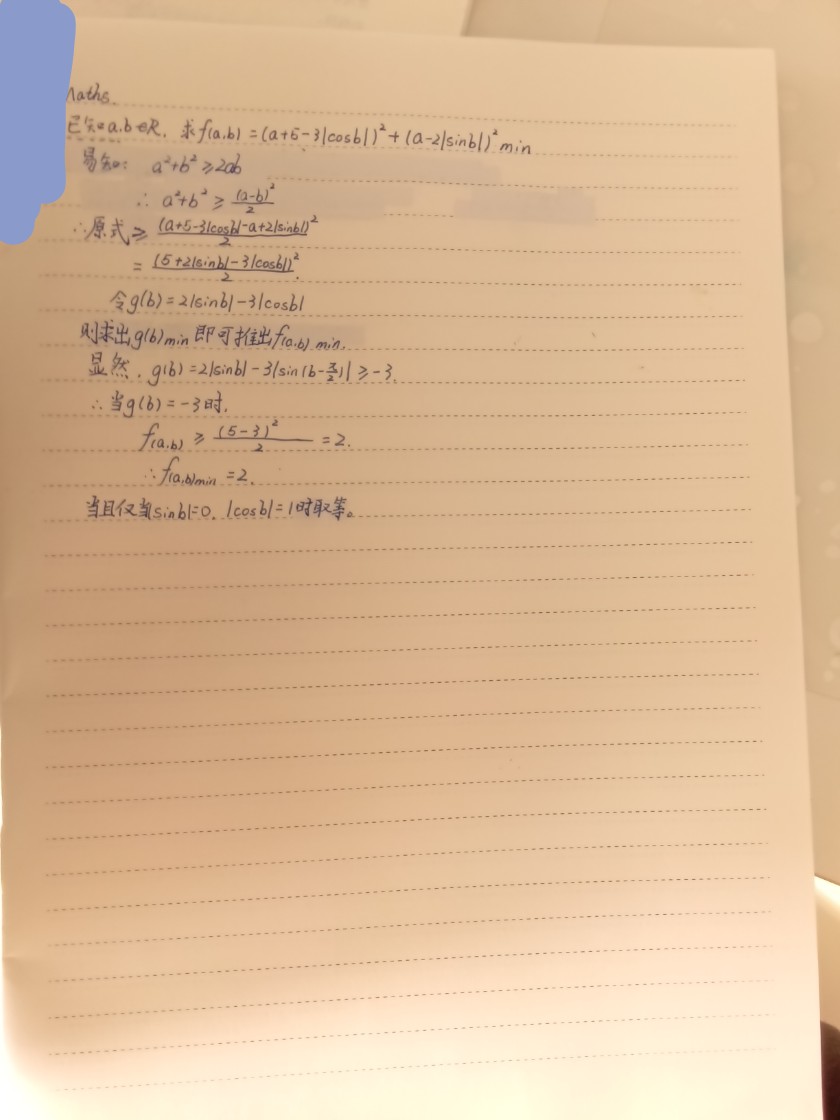 Maths.
已知a.b∈R, 求f(a,b)=(a+5-3|cosb|)²+(a-2|sinb|)² min
易知: a²+b²≥2ab
∴ a²+b²≥(a-b)²/2
∴原式≥(a+5-3|cosb|-a+2|sinb|)²/2
=(5+2|sinb|-3|cosb|)²/2.
令g(b)=2|sinb|-3|cosb|
则求出g(b)min即可推出f(a,b) min.
显然, g(b)=2|sinb|-3|sin(b-π/2)|≥-3.
∴当g(b)=-3时,
f(a,b)≥(5-3)²/2=2.
∴f(a,b)min=2.
当且仅当|sinb|=0, |cosb|=1时取等。